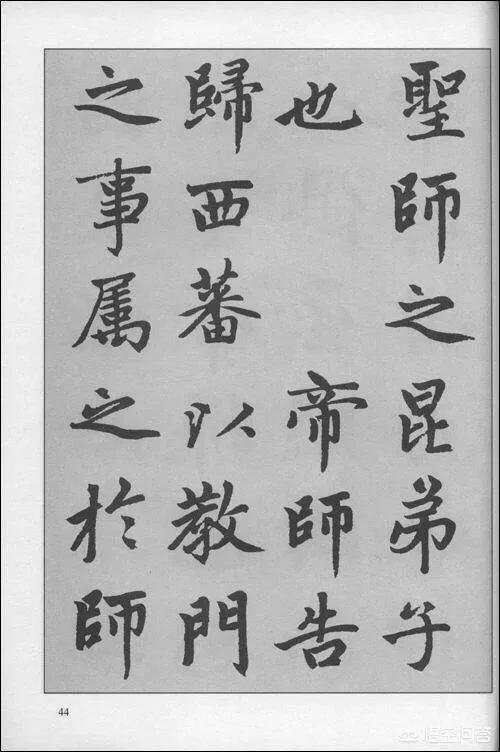 聖師之昆弟子
也 帝師告
歸西蕃以教門
之事属之於師
44
悟空问答